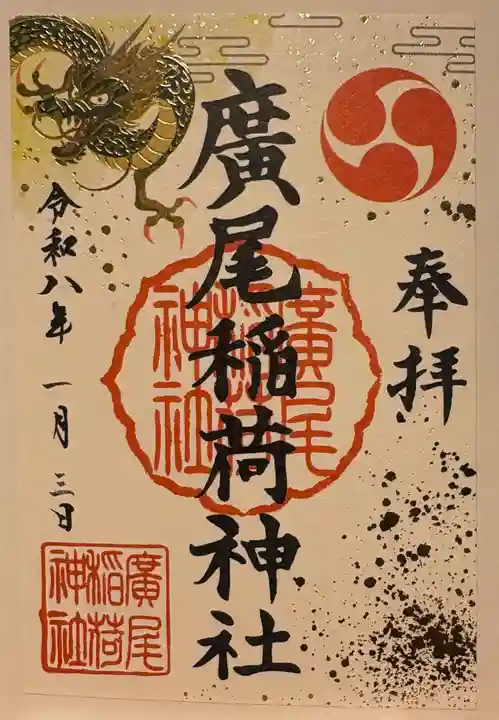 奉拝
廣尾稲荷神社
廣尾稲荷神社
令和八年 一月 三日
廣尾稲荷神社